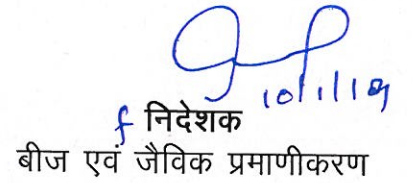 10/1/19
f निदेशक
बीज एवं जैविक प्रमाणीकरण